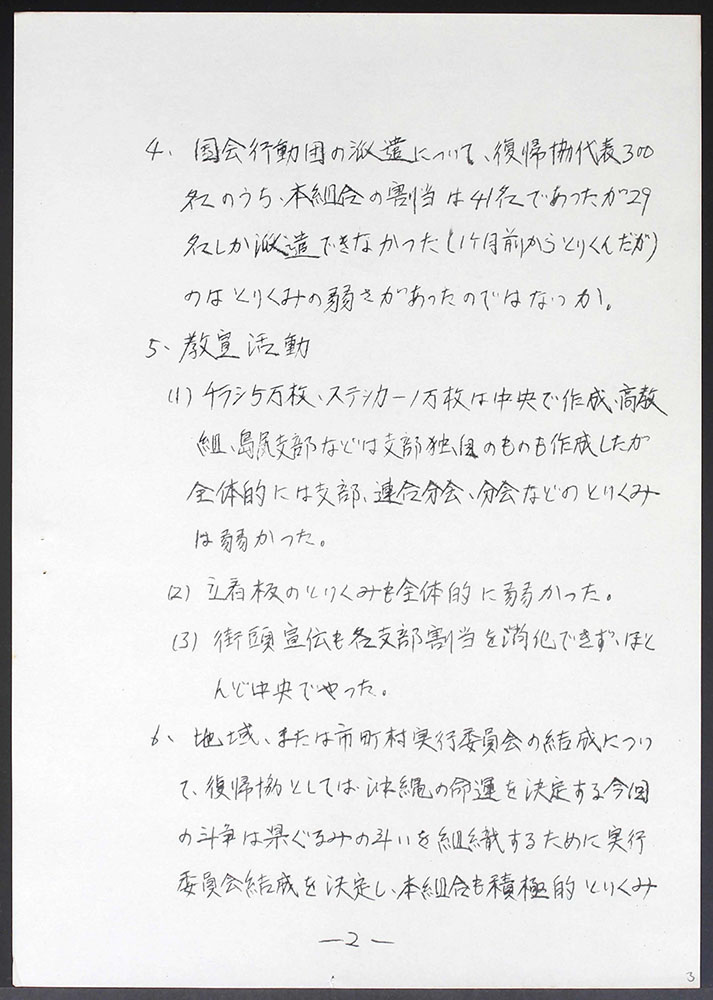 4、国会行動団の派遣について、復帰協代表300
名のうち、本組合の割当は41名であったが29
名しか派遣できなかった(1ヶ月前からとりくんだが)
のはとりくみの弱さがあったのではなっか。
5、教宣活動
(1) チラシ5万枚、ステッカー1万枚は中央で作成、高教
組、島尻支部などは支部独自のものも作成したが
全体的には支部、連合分会、分会などのとりくみ
は弱かった。
(2) 立看板のとりくみも全体的に弱かった。
(3) 街頭宣伝も各支部割当を消化できず、ほと
んど中央でやった。
6、地域、または市町村実行委員会の結成につい
て、復帰協としては沖縄の命運を決定する今回
の斗争は県ぐるみの斗いを組織するために実行
委員会結成を決定し、本組合も積極的とりくみ
—2—
3